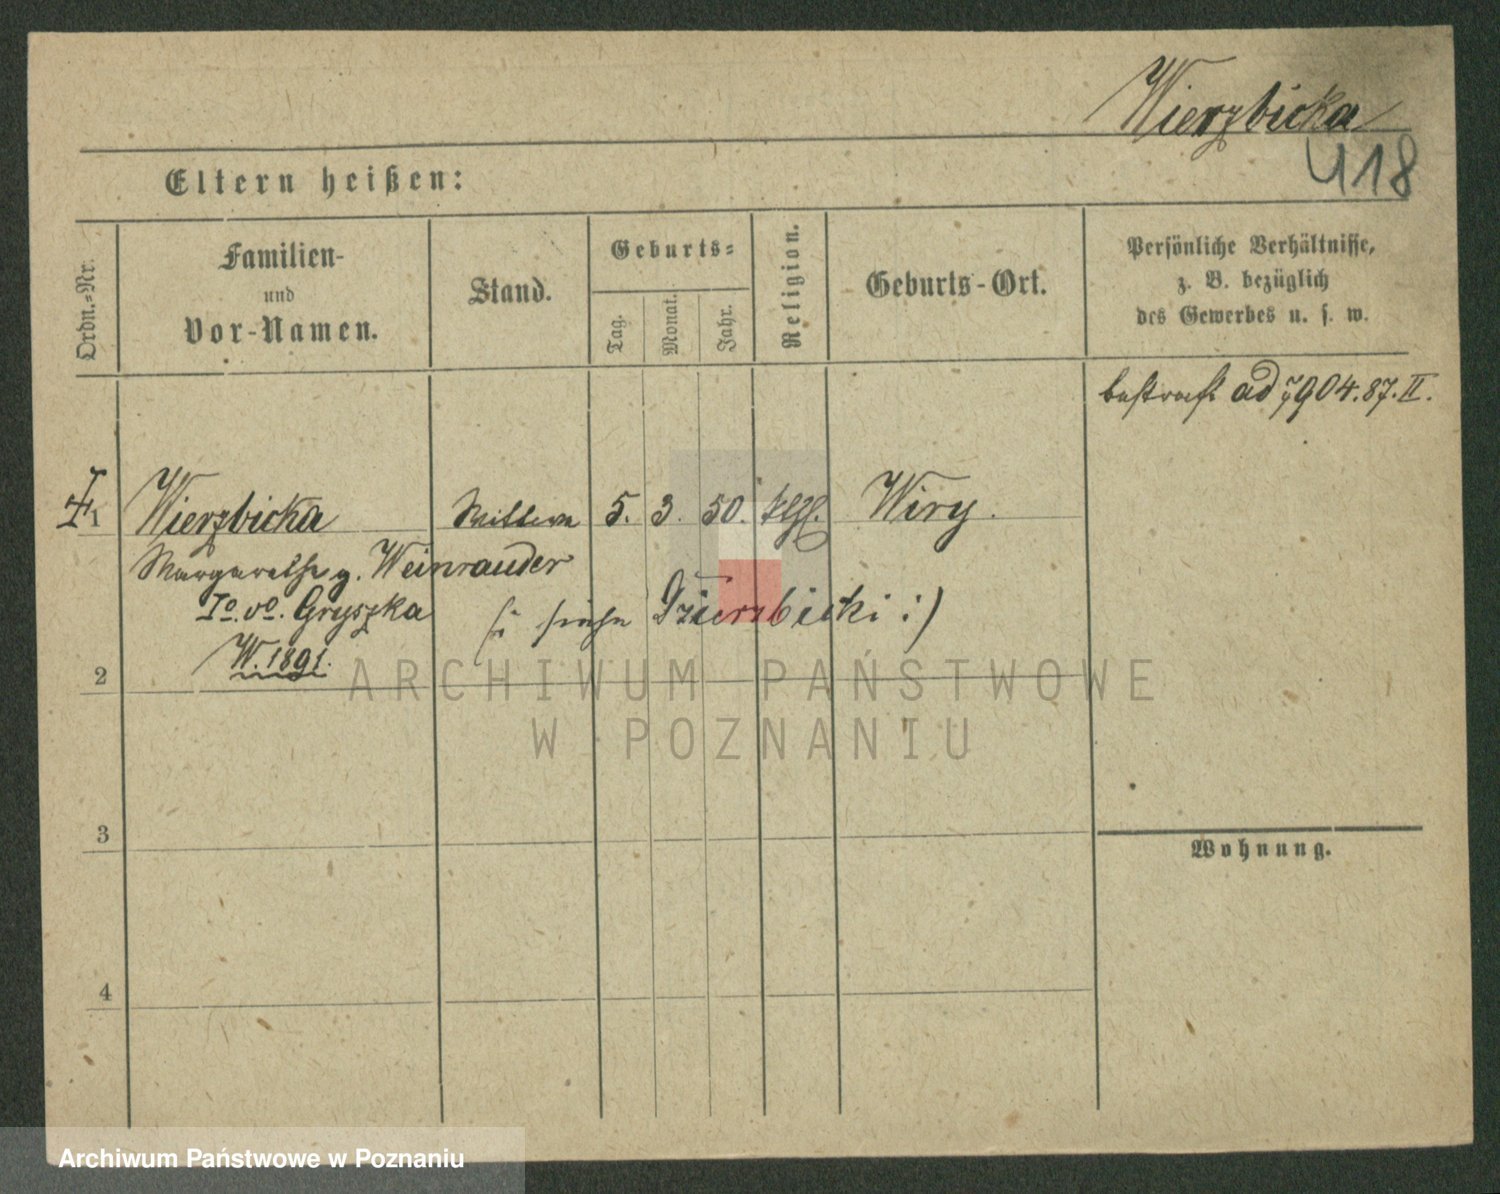 Wierzbicka
418
Eltern heißen:
Ordn.-Nr.
Familien-
und
Vor-Namen.
Stand.
Geburts-
Tag.
Monat.
Jahr.
Religion.
Geburts-Ort.
Persönliche Verhältnisse,
z. B. bezüglich
des Gewerbes u. s. w.
bestraft ad 7904.87.II.
1 Wierzbicka Wittwe 5. 3. 50. Wiry.
Margarethe g. Weinrauder
Io. vo. Gryszka (: siehe Dzierzbicki :)
W. 1891.
2
ARCHIWUM PAŃSTWOWE
W POZNANIU
3
Wohnung.
4
Archiwum Państwowe w Poznaniu